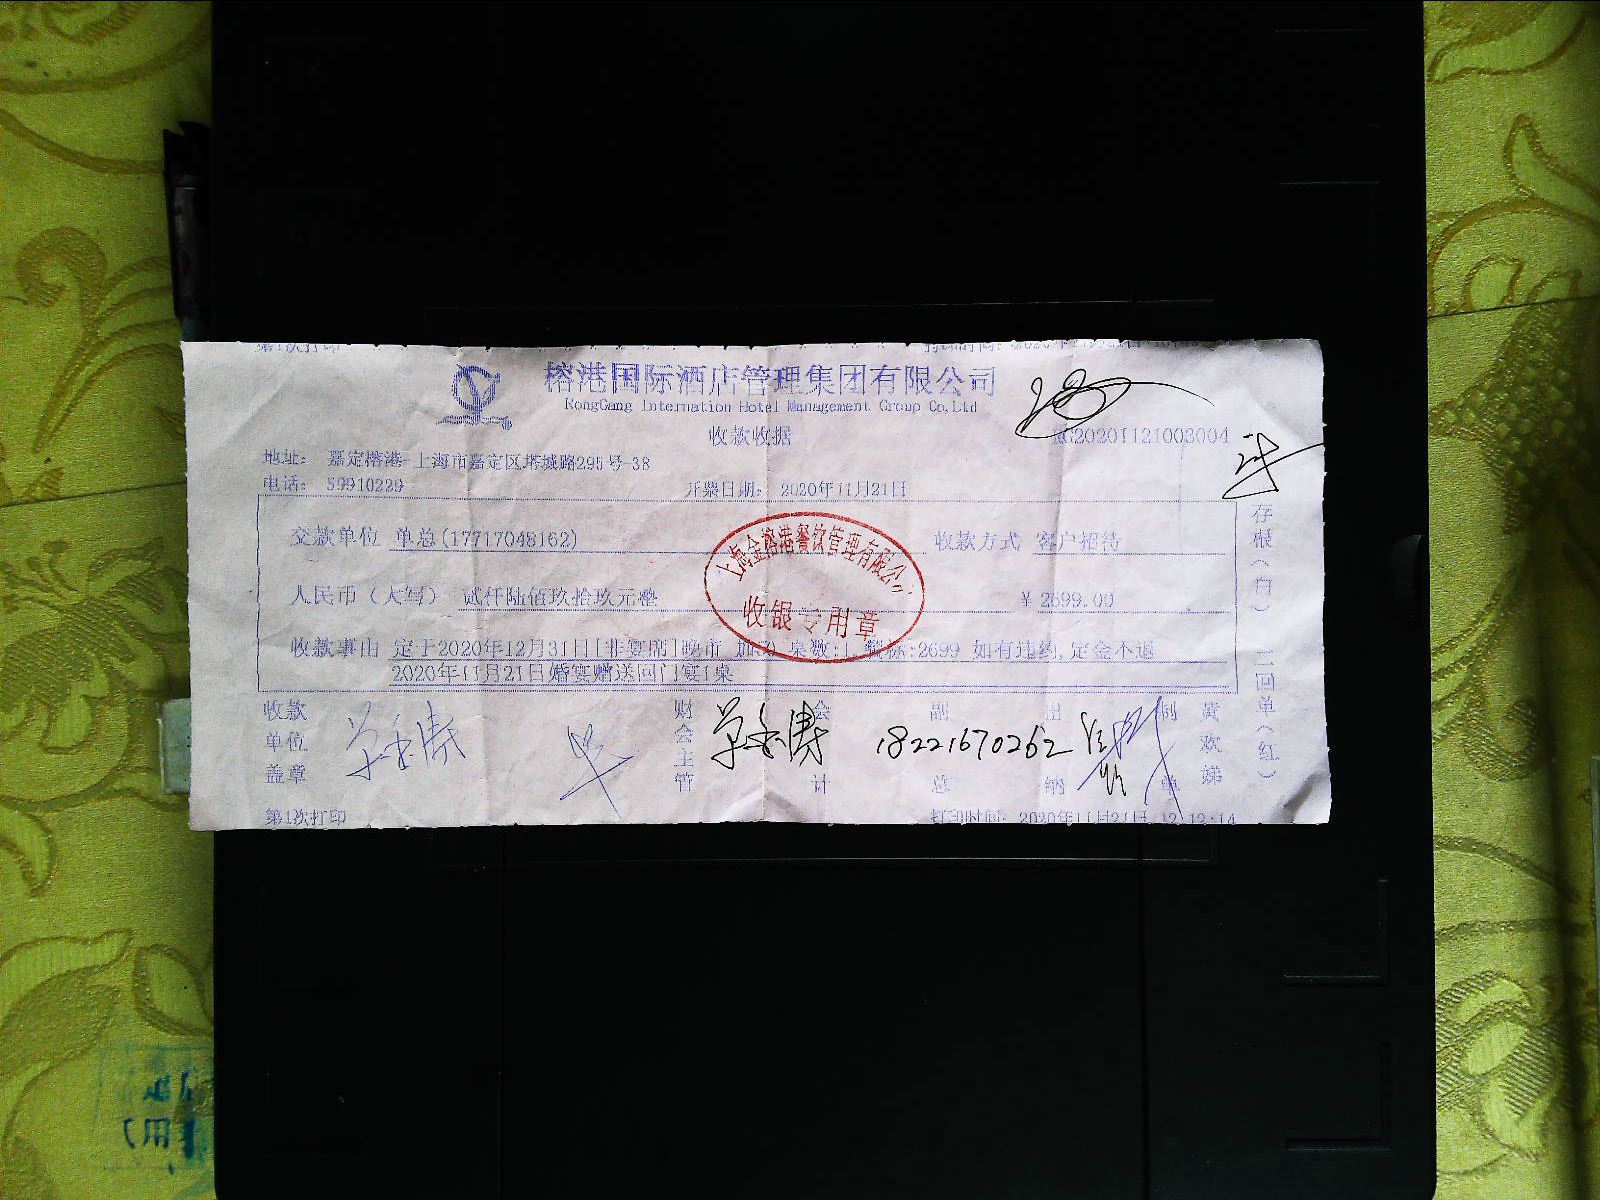 第1次打印
榕港国际酒店管理集团有限公司
RongGang Internation Hotel Management Group Co,Ltd
收款收据
20201121003004
地址: 嘉定榕港 上海市嘉定区塔城路295号-38
电话: 59910229 开票日期: 2020年11月21日
交款单位 单总(17717048162) 收款方式 客户招待
人民币(大写) 贰仟陆佰玖拾玖元整 ¥ 2699.00
收款事由 定于2020年12月31日[非宴席]晚市 桌数:1 餐标:2699 如有违约,定金不退
2020年11月21日婚宴赠送回门宴1桌
上海金榕港餐饮管理有限公
收银专用章
收款单位盖章 财会主管 会计 副总 出纳 制单 黄欢娣
18221670262
存根(白) 二回单(红)
第1次打印 打印时间: 2020年11月21日 12:12:14